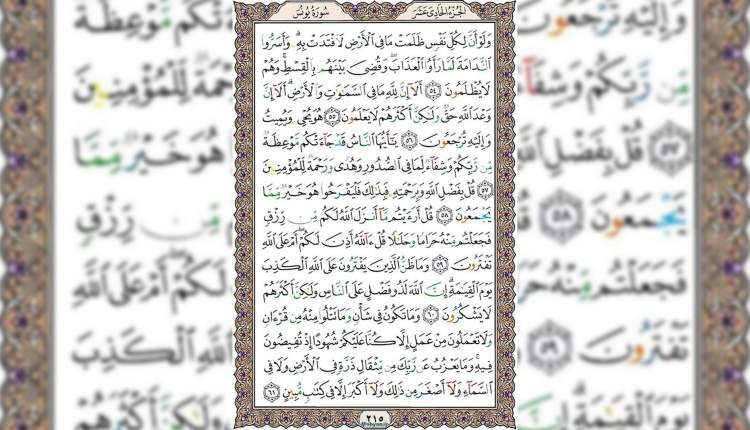 سُورَةُ يُونُسَ الجُزْءُ الحَادِي عَشَرَ
وَلَوْ أَنَّ لِكُلِّ نَفْسٍ ظَلَمَتْ مَا فِي الْأَرْضِ لَافْتَدَتْ بِهِ ۗ وَأَسَرُّوا
النَّدَامَةَ لَمَّا رَأَوُا الْعَذَابَ ۖ وَقُضِيَ بَيْنَهُم بِالْقِسْطِ ۚ وَهُمْ
لَا يُظْلَمُونَ ٥٤ أَلَا إِنَّ لِلَّهِ مَا فِي السَّمَٰوَٰتِ وَالْأَرْضِ ۗ أَلَا إِنَّ
وَعْدَ اللَّهِ حَقٌّ وَلَٰكِنَّ أَكْثَرَهُمْ لَا يَعْلَمُونَ ٥٥ هُوَ يُحْيِي وَيُمِيتُ
وَإِلَيْهِ تُرْجَعُونَ ٥٦ يَٰٓأَيُّهَا النَّاسُ قَدْ جَاءَتْكُم مَّوْعِظَةٌ
مِّن رَّبِّكُمْ وَشِفَاءٌ لِّمَا فِي الصُّدُورِ وَهُدًى وَرَحْمَةٌ لِّلْمُؤْمِنِينَ
٥٧ قُلْ بِفَضْلِ اللَّهِ وَبِرَحْمَتِهِ فَبِذَٰلِكَ فَلْيَفْرَحُوا هُوَ خَيْرٌ مِّمَّا
يَجْمَعُونَ ٥٨ قُلْ أَرَءَيْتُم مَّا أَنزَلَ اللَّهُ لَكُم مِّن رِّزْقٍ
فَجَعَلْتُم مِّنْهُ حَرَامًا وَحَلَٰلًا قُلْ ءَآللَّهُ أَذِنَ لَكُمْ ۖ أَمْ عَلَى اللَّهِ
تَفْتَرُونَ ٥٩ وَمَا ظَنُّ الَّذِينَ يَفْتَرُونَ عَلَى اللَّهِ الْكَذِبَ
يَوْمَ الْقِيَٰمَةِ ۗ إِنَّ اللَّهَ لَذُو فَضْلٍ عَلَى النَّاسِ وَلَٰكِنَّ أَكْثَرَهُمْ
لَا يَشْكُرُونَ ٦٠ وَمَا تَكُونُ فِي شَأْنٍ وَمَا تَتْلُوا مِنْهُ مِن قُرْءَانٍ
وَلَا تَعْمَلُونَ مِنْ عَمَلٍ إِلَّا كُنَّا عَلَيْكُمْ شُهُودًا إِذْ تُفِيضُونَ
فِيهِ ۚ وَمَا يَعْزُبُ عَن رَّبِّكَ مِن مِّثْقَالِ ذَرَّةٍ فِي الْأَرْضِ وَلَا فِي
السَّمَاءِ وَلَا أَصْغَرَ مِن ذَٰلِكَ وَلَا أَكْبَرَ إِلَّا فِي كِتَٰبٍ مُّبِينٍ ٦١
٢١٥